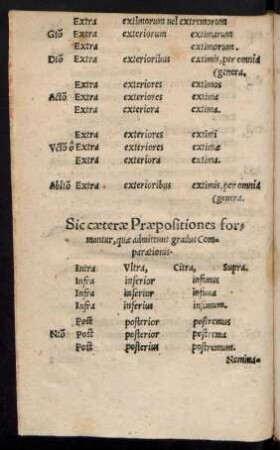 Extra extimorum uel extremorum
Gtõ Extra exteriorum extimarum
Extra extimorum.
Dtõ Extra exterioribus extimis, per omnia
(genera.
Extra exteriores extimos
Actõ Extra exteriores extimas
Extra exteriora extima.
Extra exteriores extimi
Vctõ ô Extra exteriores extimæ
Extra exteriora extima.
Abltõ Extra exterioribus extimis, per omnia
(genera.
Sic cæteræ Præpositiones for-
mantur, quæ admittunt gradus Com-
parationis.
Intra Vltra, Citra, Supra.
Infra inferior infimus
Infra inferior infima
Infra inferius infimum.
Post posterior postremus
N:õ Post posterior postrema
Post posterius postremum.
Nomina-